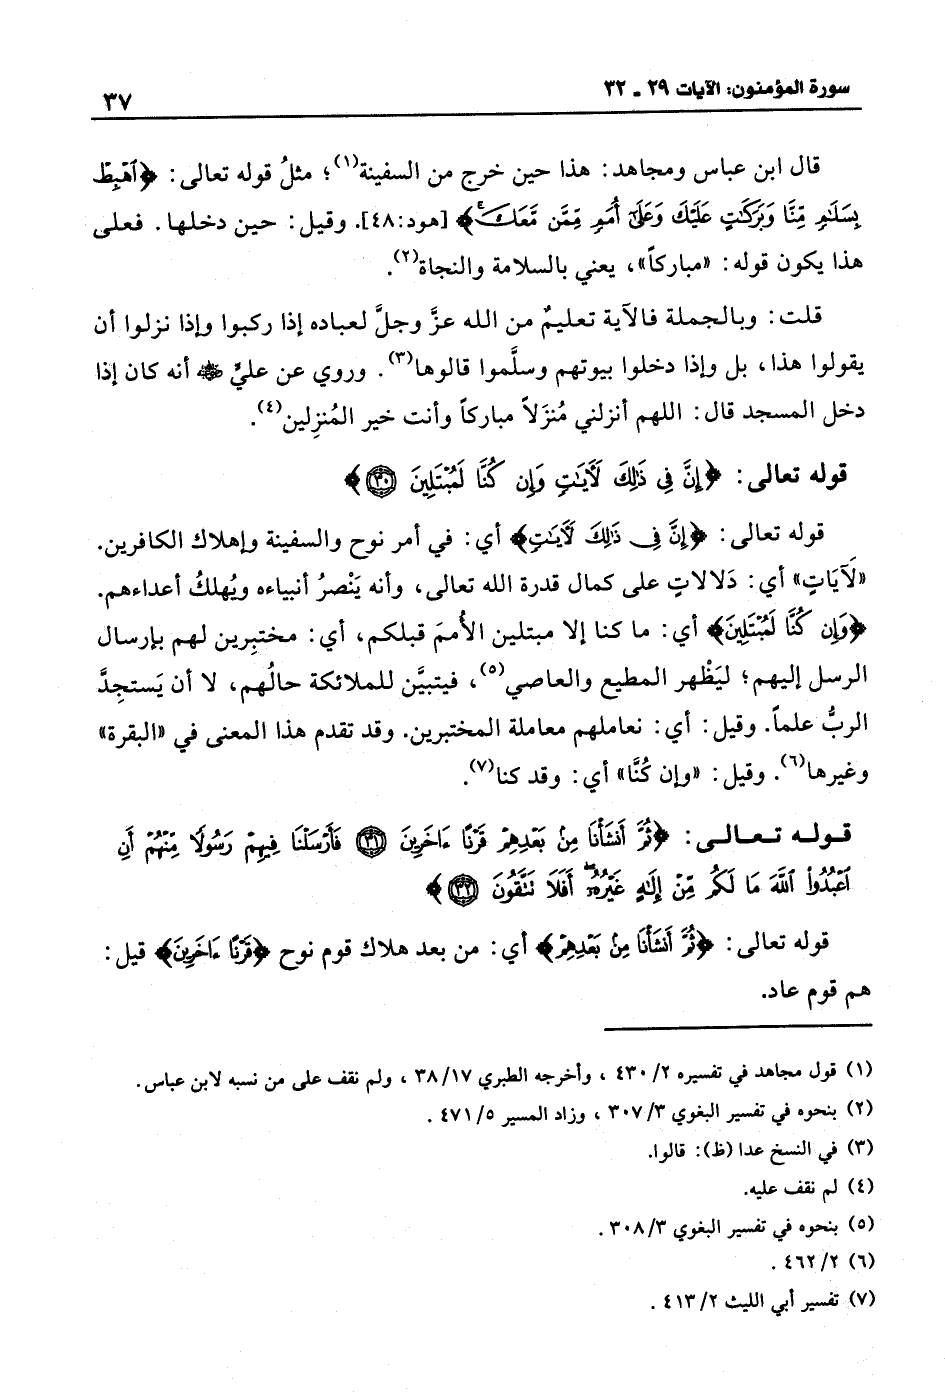 سورة المؤمنون: الآيات ٢٩ ـ ٣٢
٣٧
قال ابن عباس ومجاهد: هذا حين خرج من السفينة(١)؛ مثلُ قوله تعالى: ﴿ٱهْبِطْ
بِسَلَٰمٍ مِّنَّا وَبَرَكَٰتٍ عَلَيْكَ وَعَلَىٰٓ أُمَمٍ مِّمَّن مَّعَكَ﴾ [هود:٤٨]. وقيل: حين دخلها. فعلى
هذا يكون قوله: «مباركاً»، يعني بالسلامة والنجاة(٢).
قلت: وبالجملة فالآية تعليمٌ من الله عزَّ وجلَّ لعباده إذا ركبوا وإذا نزلوا أن
يقولوا هذا، بل وإذا دخلوا بيوتهم وسلَّموا قالوها(٣). وروي عن عليٍّ ﷺ أنه كان إذا
دخل المسجد قال: اللهم أنزلني مُنزَلاً مباركاً وأنت خير المُنزِلين(٤).
قوله تعالى: ﴿إِنَّ فِى ذَٰلِكَ لَءَايَٰتٍ وَإِن كُنَّا لَمُبْتَلِينَ ٣٠﴾
قوله تعالى: ﴿إِنَّ فِى ذَٰلِكَ لَءَايَٰتٍ﴾ أي: في أمر نوح والسفينة وإهلاك الكافرين.
«لَآيَاتٍ» أي: دَلالاتٍ على كمال قدرة الله تعالى، وأنه يَنْصرُ أنبياءه ويُهلكُ أعداءهم.
﴿وَإِن كُنَّا لَمُبْتَلِينَ﴾ أي: ما كنا إلا مبتلين الأُممَ قبلكم، أي: مختبِرين لهم بإرسال
الرسل إليهم؛ ليَظْهر المطيع والعاصي(٥)، فيتبيَّن للملائكة حالُهم، لا أن يَستجِدَّ
الربُّ علماً. وقيل: أي: نعاملهم معاملة المختبرين. وقد تقدم هذا المعنى في «البقرة»
وغيرها(٦). وقيل: «وإن كُنَّا» أي: وقد كنا(٧).
قوله تعالى: ﴿ثُمَّ أَنشَأْنَا مِنۢ بَعْدِهِمْ قَرْنًا ءَاخَرِينَ ٣١ فَأَرْسَلْنَا فِيهِمْ رَسُولًا مِّنْهُمْ أَنِ
ٱعْبُدُوا۟ ٱللَّهَ مَا لَكُم مِّنْ إِلَٰهٍ غَيْرُهُۥٓ أَفَلَا تَتَّقُونَ ٣٢﴾
قوله تعالى: ﴿ثُمَّ أَنشَأْنَا مِنۢ بَعْدِهِمْ﴾ أي: من بعد هلاك قوم نوح ﴿قَرْنًا ءَاخَرِينَ﴾ قيل:
هم قوم عاد.
(١) قول مجاهد في تفسيره ٢/ ٤٣٠ ، وأخرجه الطبري ١٧/ ٣٨ ، ولم نقف على من نسبه لابن عباس.
(٢) بنحوه في تفسير البغوي ٣/ ٣٠٧ ، وزاد المسير ٥/ ٤٧١ .
(٣) في النسخ عدا (ظ): قالوا.
(٤) لم نقف عليه.
(٥) بنحوه في تفسير البغوي ٣/ ٣٠٨ .
(٦) ٢/ ٤٦٢ .
(٧) تفسير أبي الليث ٢/ ٤١٣ .